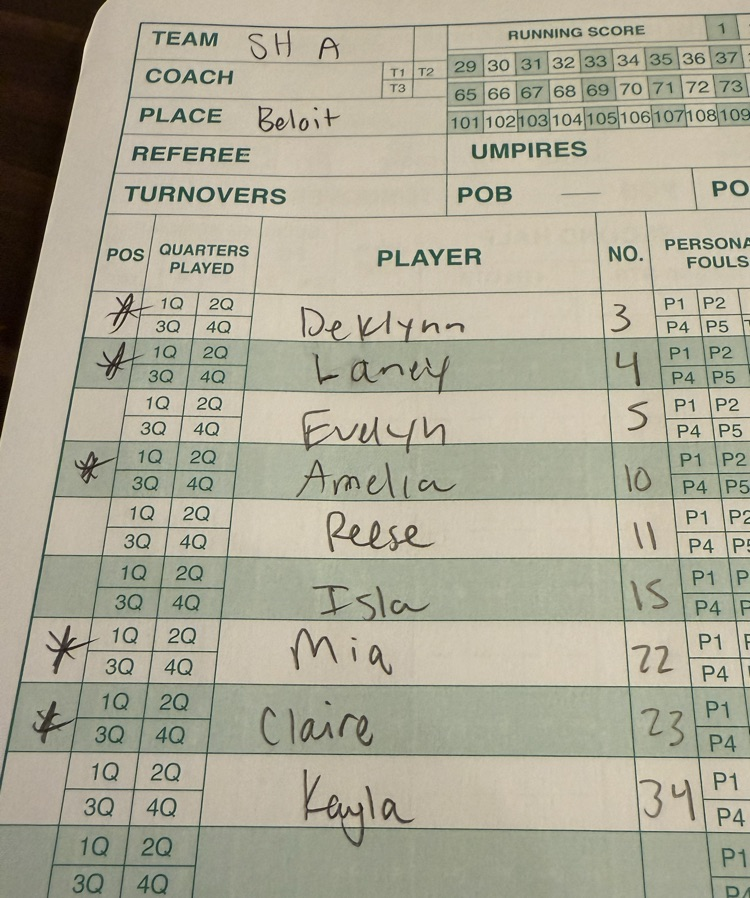 TEAM SH A RUNNING SCORE 1
COACH T1 T2 29 30 31 32 33 34 35 36 37
T3 65 66 67 68 69 70 71 72 73
PLACE Beloit 101 102 103 104 105 106 107 108 109
REFEREE UMPIRES
TURNOVERS POB — PO
POS QUARTERS PLAYED PLAYER NO. PERSONA FOULS
* 1Q 2Q Deklynn 3 P1 P2
3Q 4Q P4 P5
* 1Q 2Q Laney 4 P1 P2
3Q 4Q P4 P5
1Q 2Q Evelyn 5 P1 P2
3Q 4Q P4 P5
* 1Q 2Q Amelia 10 P1 P2
3Q 4Q P4 P5
1Q 2Q Reese 11 P1 P2
3Q 4Q P4 P5
1Q 2Q Isla 15 P1 P
3Q 4Q P4 P
* 1Q 2Q Mia 22 P1
3Q 4Q P4
* 1Q 2Q Claire 23 P1
3Q 4Q P4
1Q 2Q Kayla 34 P1
3Q 4Q P4
1Q 2Q P1
3Q 4Q P4